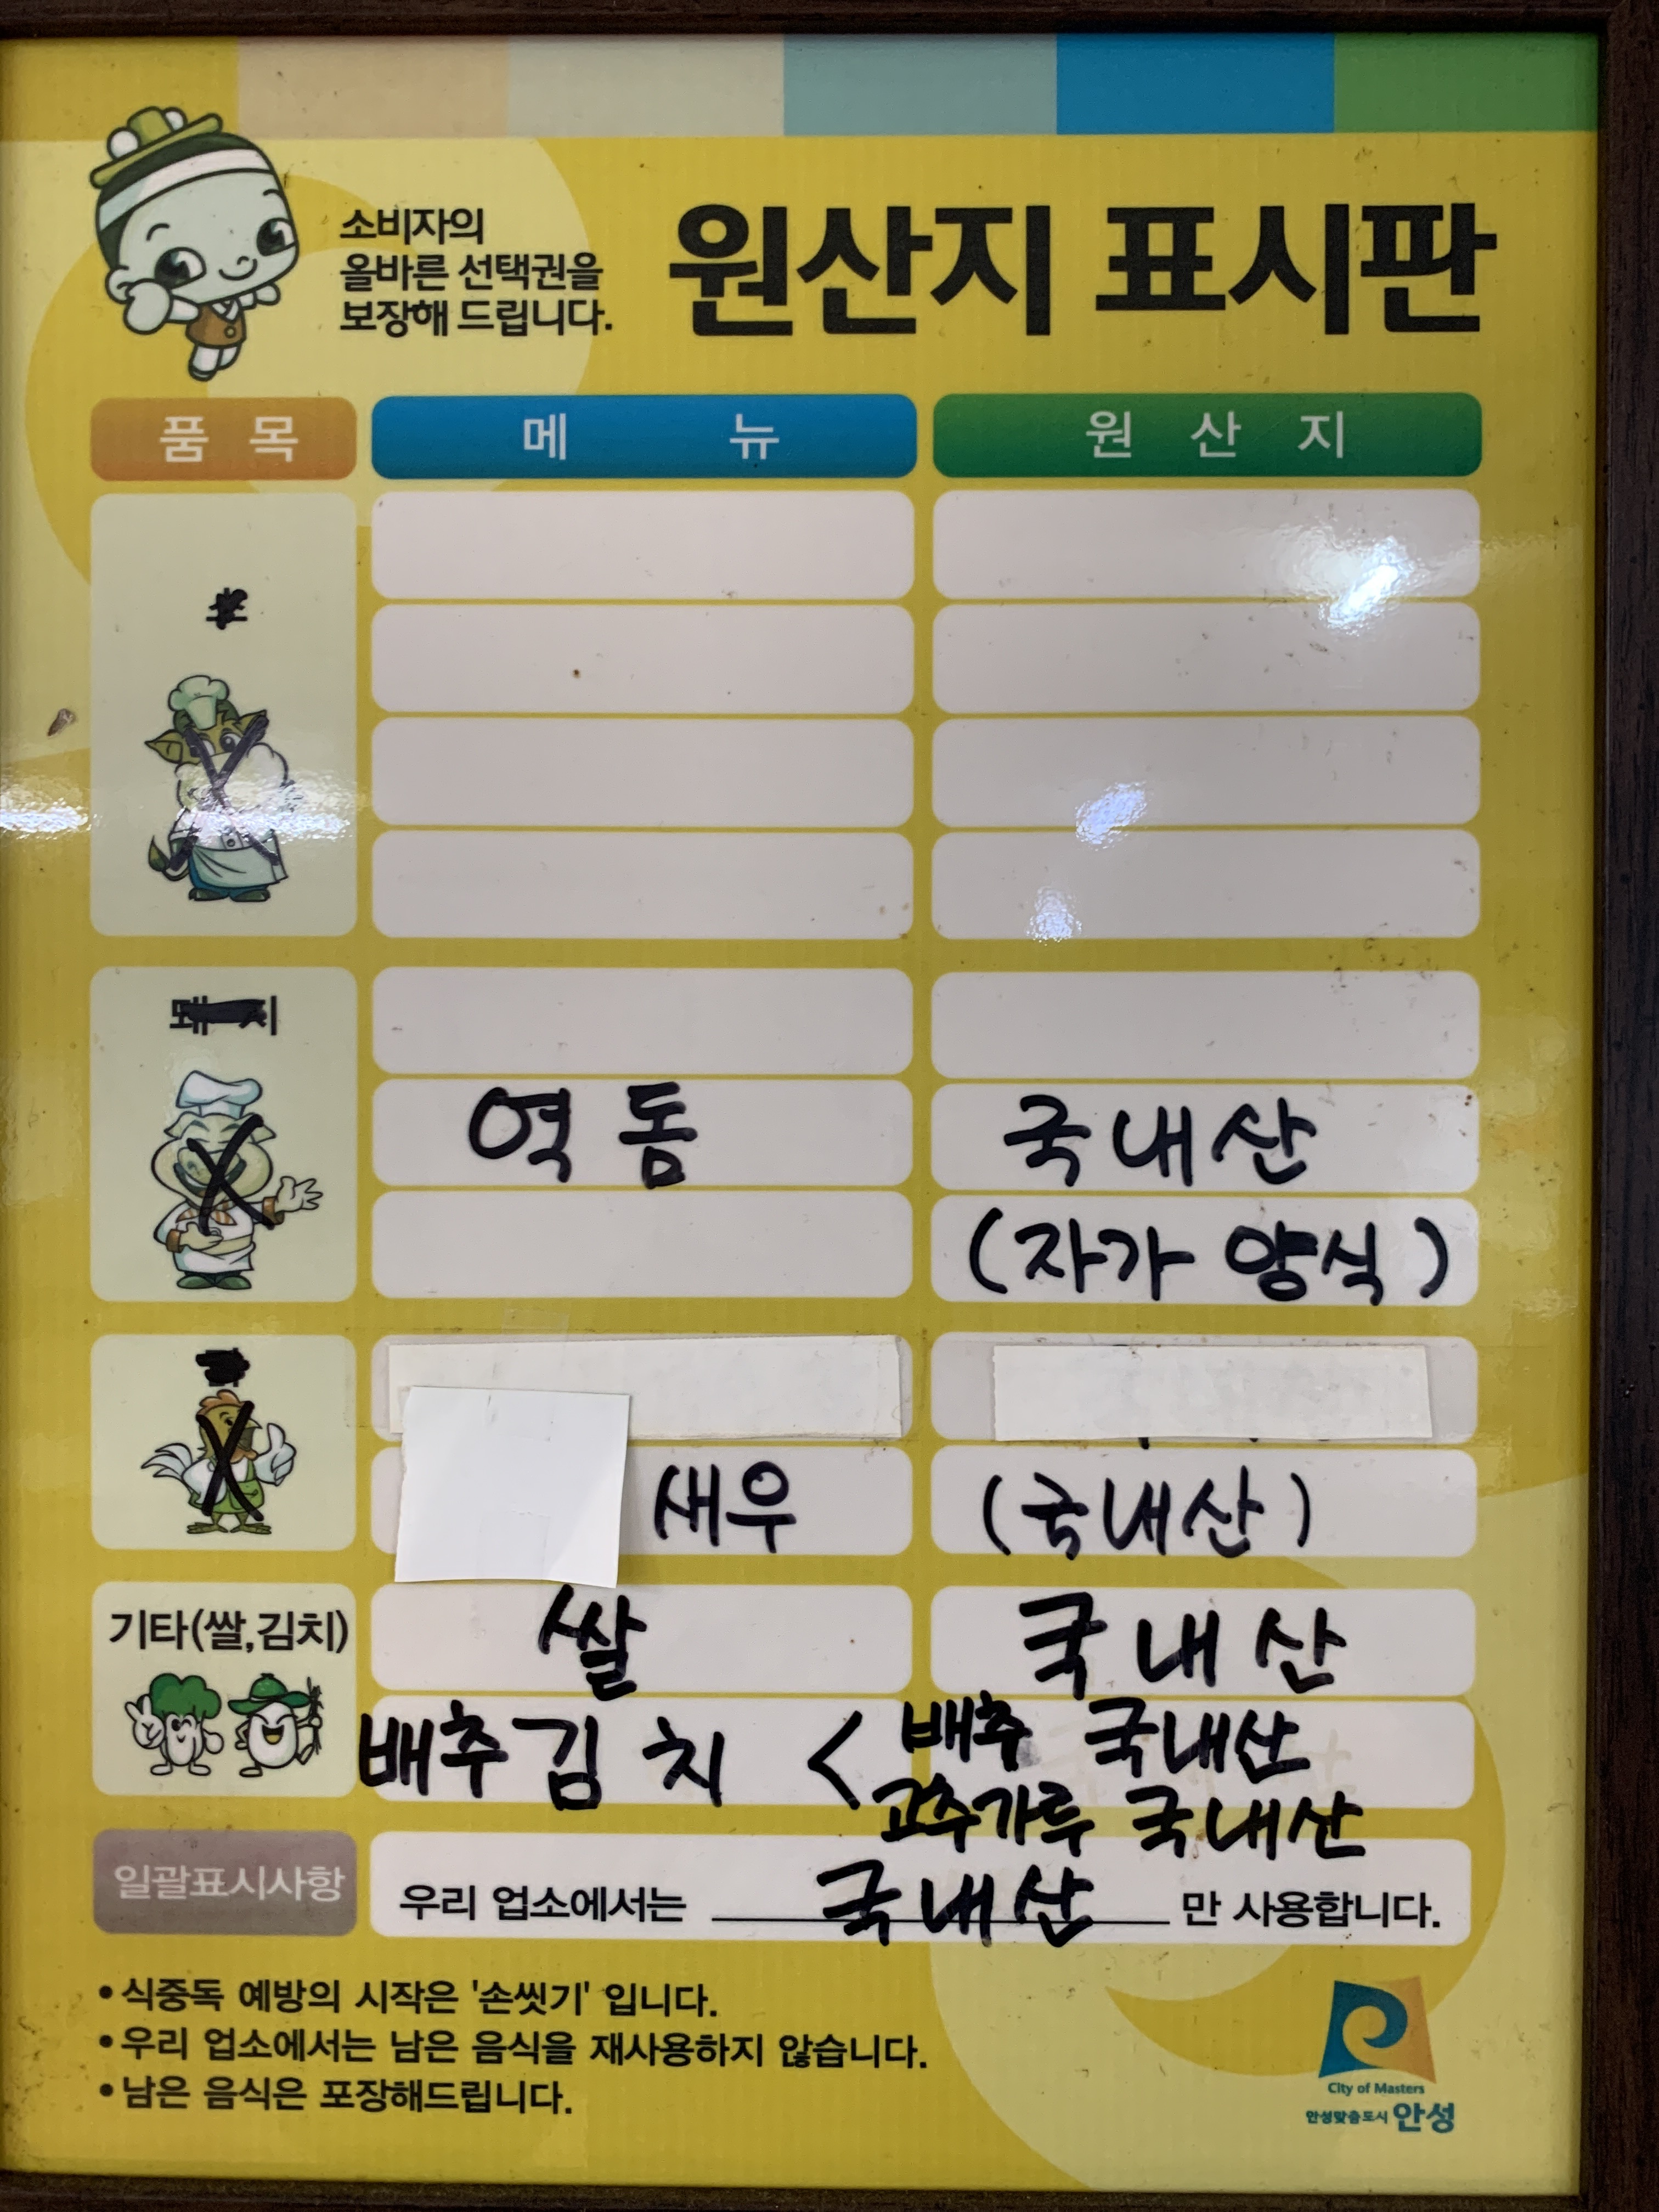 소비자의
올바른 선택권을
보장해 드립니다.
원산지 표시판
품 목 메 뉴 원 산 지
역돔 국내산
(자가 양식)
새우 (국내산)
기타(쌀,김치) 쌀 국내산
배추김치 < 배추 국내산
고추가루 국내산
일괄표시사항 우리 업소에서는 국내산 만 사용합니다.
•식중독 예방의 시작은 '손씻기' 입니다.
•우리 업소에서는 남은 음식을 재사용하지 않습니다.
•남은 음식은 포장해드립니다.
City of Masters
안성맞춤도시 안성